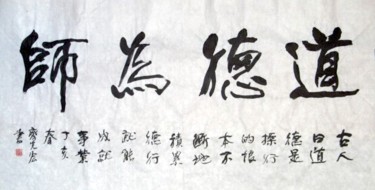 道德為師
古人
曰道
德是
操行
的根
本不
斷地
積累
德行
就能
成就
事業
丁亥
春